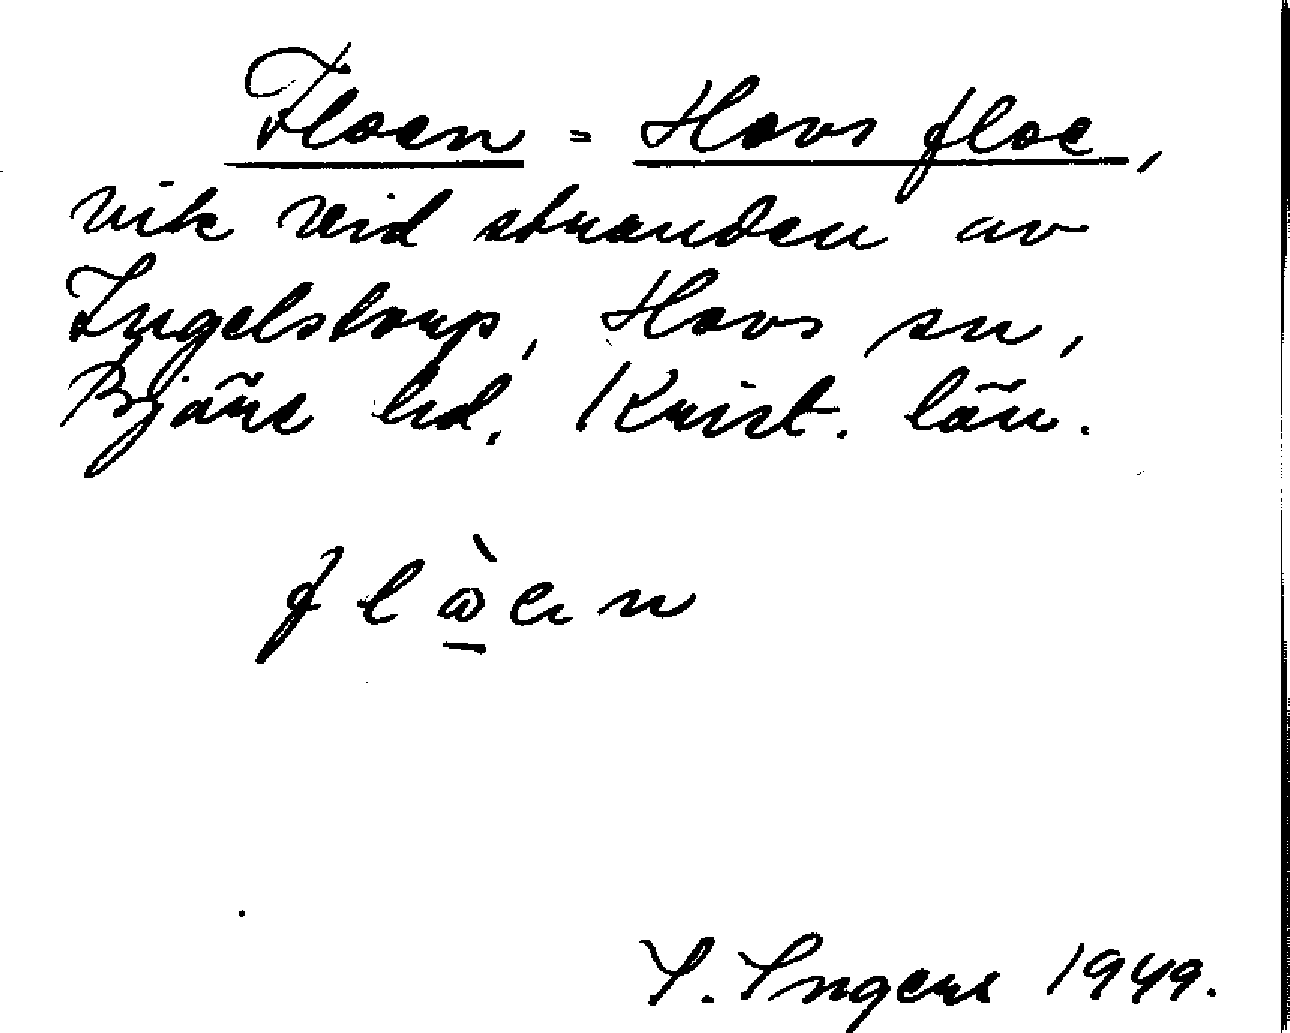 Floen = Hovs floe,
vik vid stranden av
Ingelstorp, Hovs sn,
Bjäre hd, Krist. län.
flὼ̱en
I. Ingers 1949.